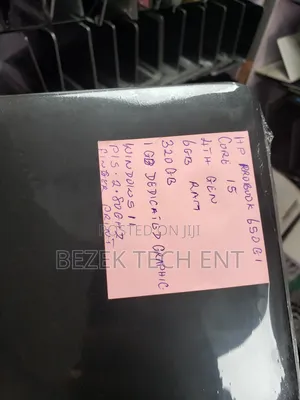 HP PROBOOK 650B1
CORE I5
4TH GEN
6GB RAM
320GB
1GB DEDICATED GRAPHIC
WINDOWS 1
P/S-2.80GHZ
FINGER PRINT
POSTED ON JIJI
BEZEK TECH ENT